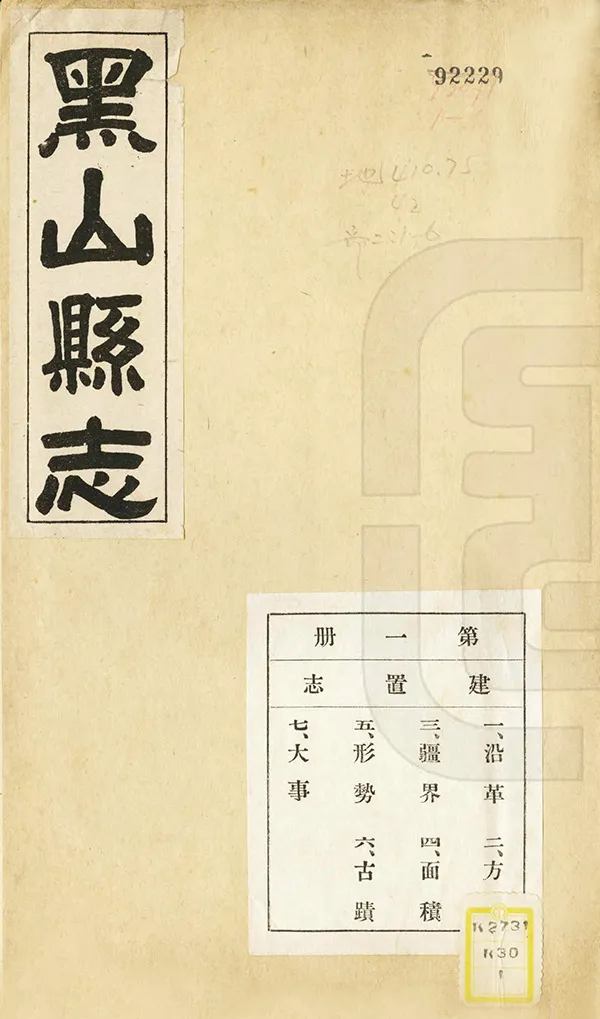 黑山縣志
92229
地410.75
42
第一册
建置志
一、沿革 二、方
三、疆界 四、面積
五、形勢 六、古蹟
七、大事
K2731
K30
1